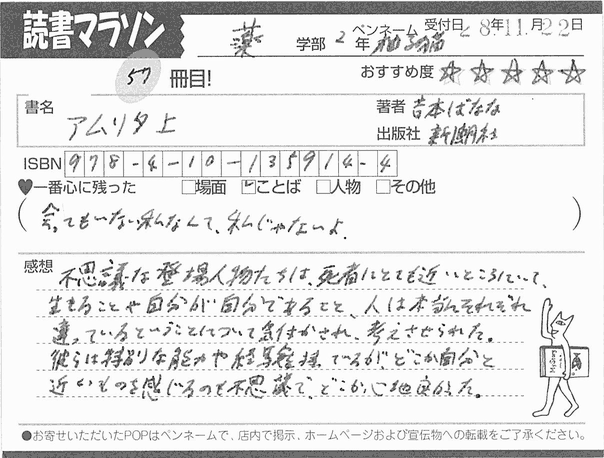 読書マラソン
薬 学部 2年 ペンネーム 柚子猫 受付日 28年11月22日
57 冊目! おすすめ度 ☆☆☆☆☆
書名 アムリタ上
著者 吉本ばなな
出版社 新潮社
ISBN 978-4-10-135914-4
♥一番心に残った □場面 ☑ことば □人物 □その他
(会ってもいない私なんて、私じゃないよ.)
感想 不思議な登場人物たちは、死者にとても近いところにいて、
生きることや自分が自分であること、人は本当にそれぞれ
違っているということについて気付かされ、考えさせられた。
彼らは特別な能力や経験 ているが、どこか自分と
近いものを感じるのも不思議で、どこか心地良かった。
●お寄せいただいたPOPはペンネームで、店内で掲示、ホームページおよび宣伝物への転載をご了承ください。